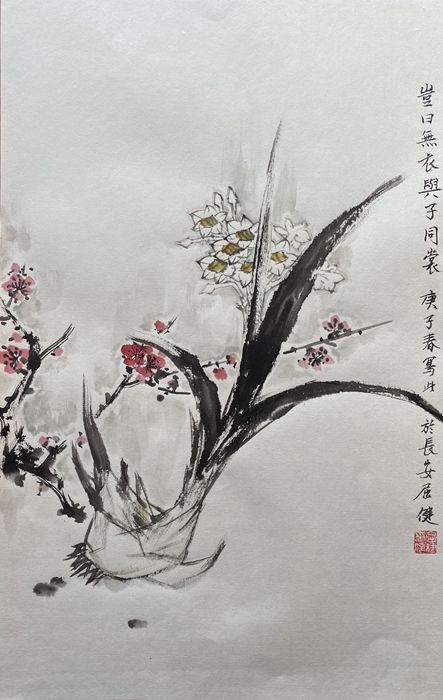 豈曰無衣與子同裳 庚子春寫此於長安屈健